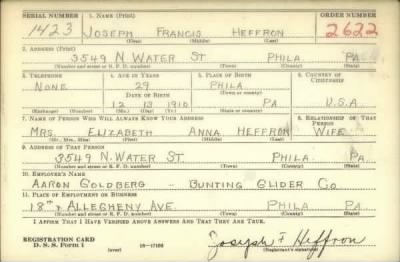 SERIAL NUMBER 1. NAME (Print) ORDER NUMBER
1423 JOSEPH FRANCIS HEFFRON 2622
(First) (Middle) (Last)
2. ADDRESS (Print)
3549 N. WATER ST PHILA PA.
(Number and street or R. F. D. number) (Town) (County) (State)
3. TELEPHONE 4. AGE IN YEARS 5. PLACE OF BIRTH 6. COUNTRY OF CITIZENSHIP
NONE 29 PHILA
DATE OF BIRTH (Town or county)
12 13 1910 PA U.S.A
(Exchange) (Number) (Mo.) (Day) (Yr.) (State or country)
7. NAME OF PERSON WHO WILL ALWAYS KNOW YOUR ADDRESS 8. RELATIONSHIP OF THAT PERSON
MRS. ELIZABETH ANNA HEFFRON WIFE
(Mr., Mrs., Miss) (First) (Middle) (Last)
9. ADDRESS OF THAT PERSON
3549 N. WATER ST. PHILA. PA
(Number and street or R. F. D. number) (Town) (County) (State)
10. EMPLOYER'S NAME
AARON GOLDBERG - BUNTING GLIDER CO
11. PLACE OF EMPLOYMENT OR BUSINESS
18TH & ALLEGHENY AVE. PHILA PA
(Number and street or R. F. D. number) (Town) (County) (State)
I AFFIRM THAT I HAVE VERIFIED ABOVE ANSWERS AND THAT THEY ARE TRUE.
REGISTRATION CARD
D. S. S. Form 1 (over) 16—17105 Joseph F Heffron
(Registrant's signature)